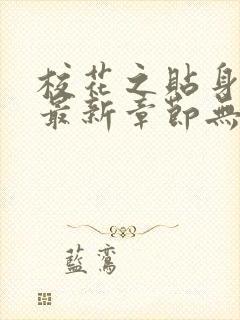 校花之貼身
最新章節無
藍鸞